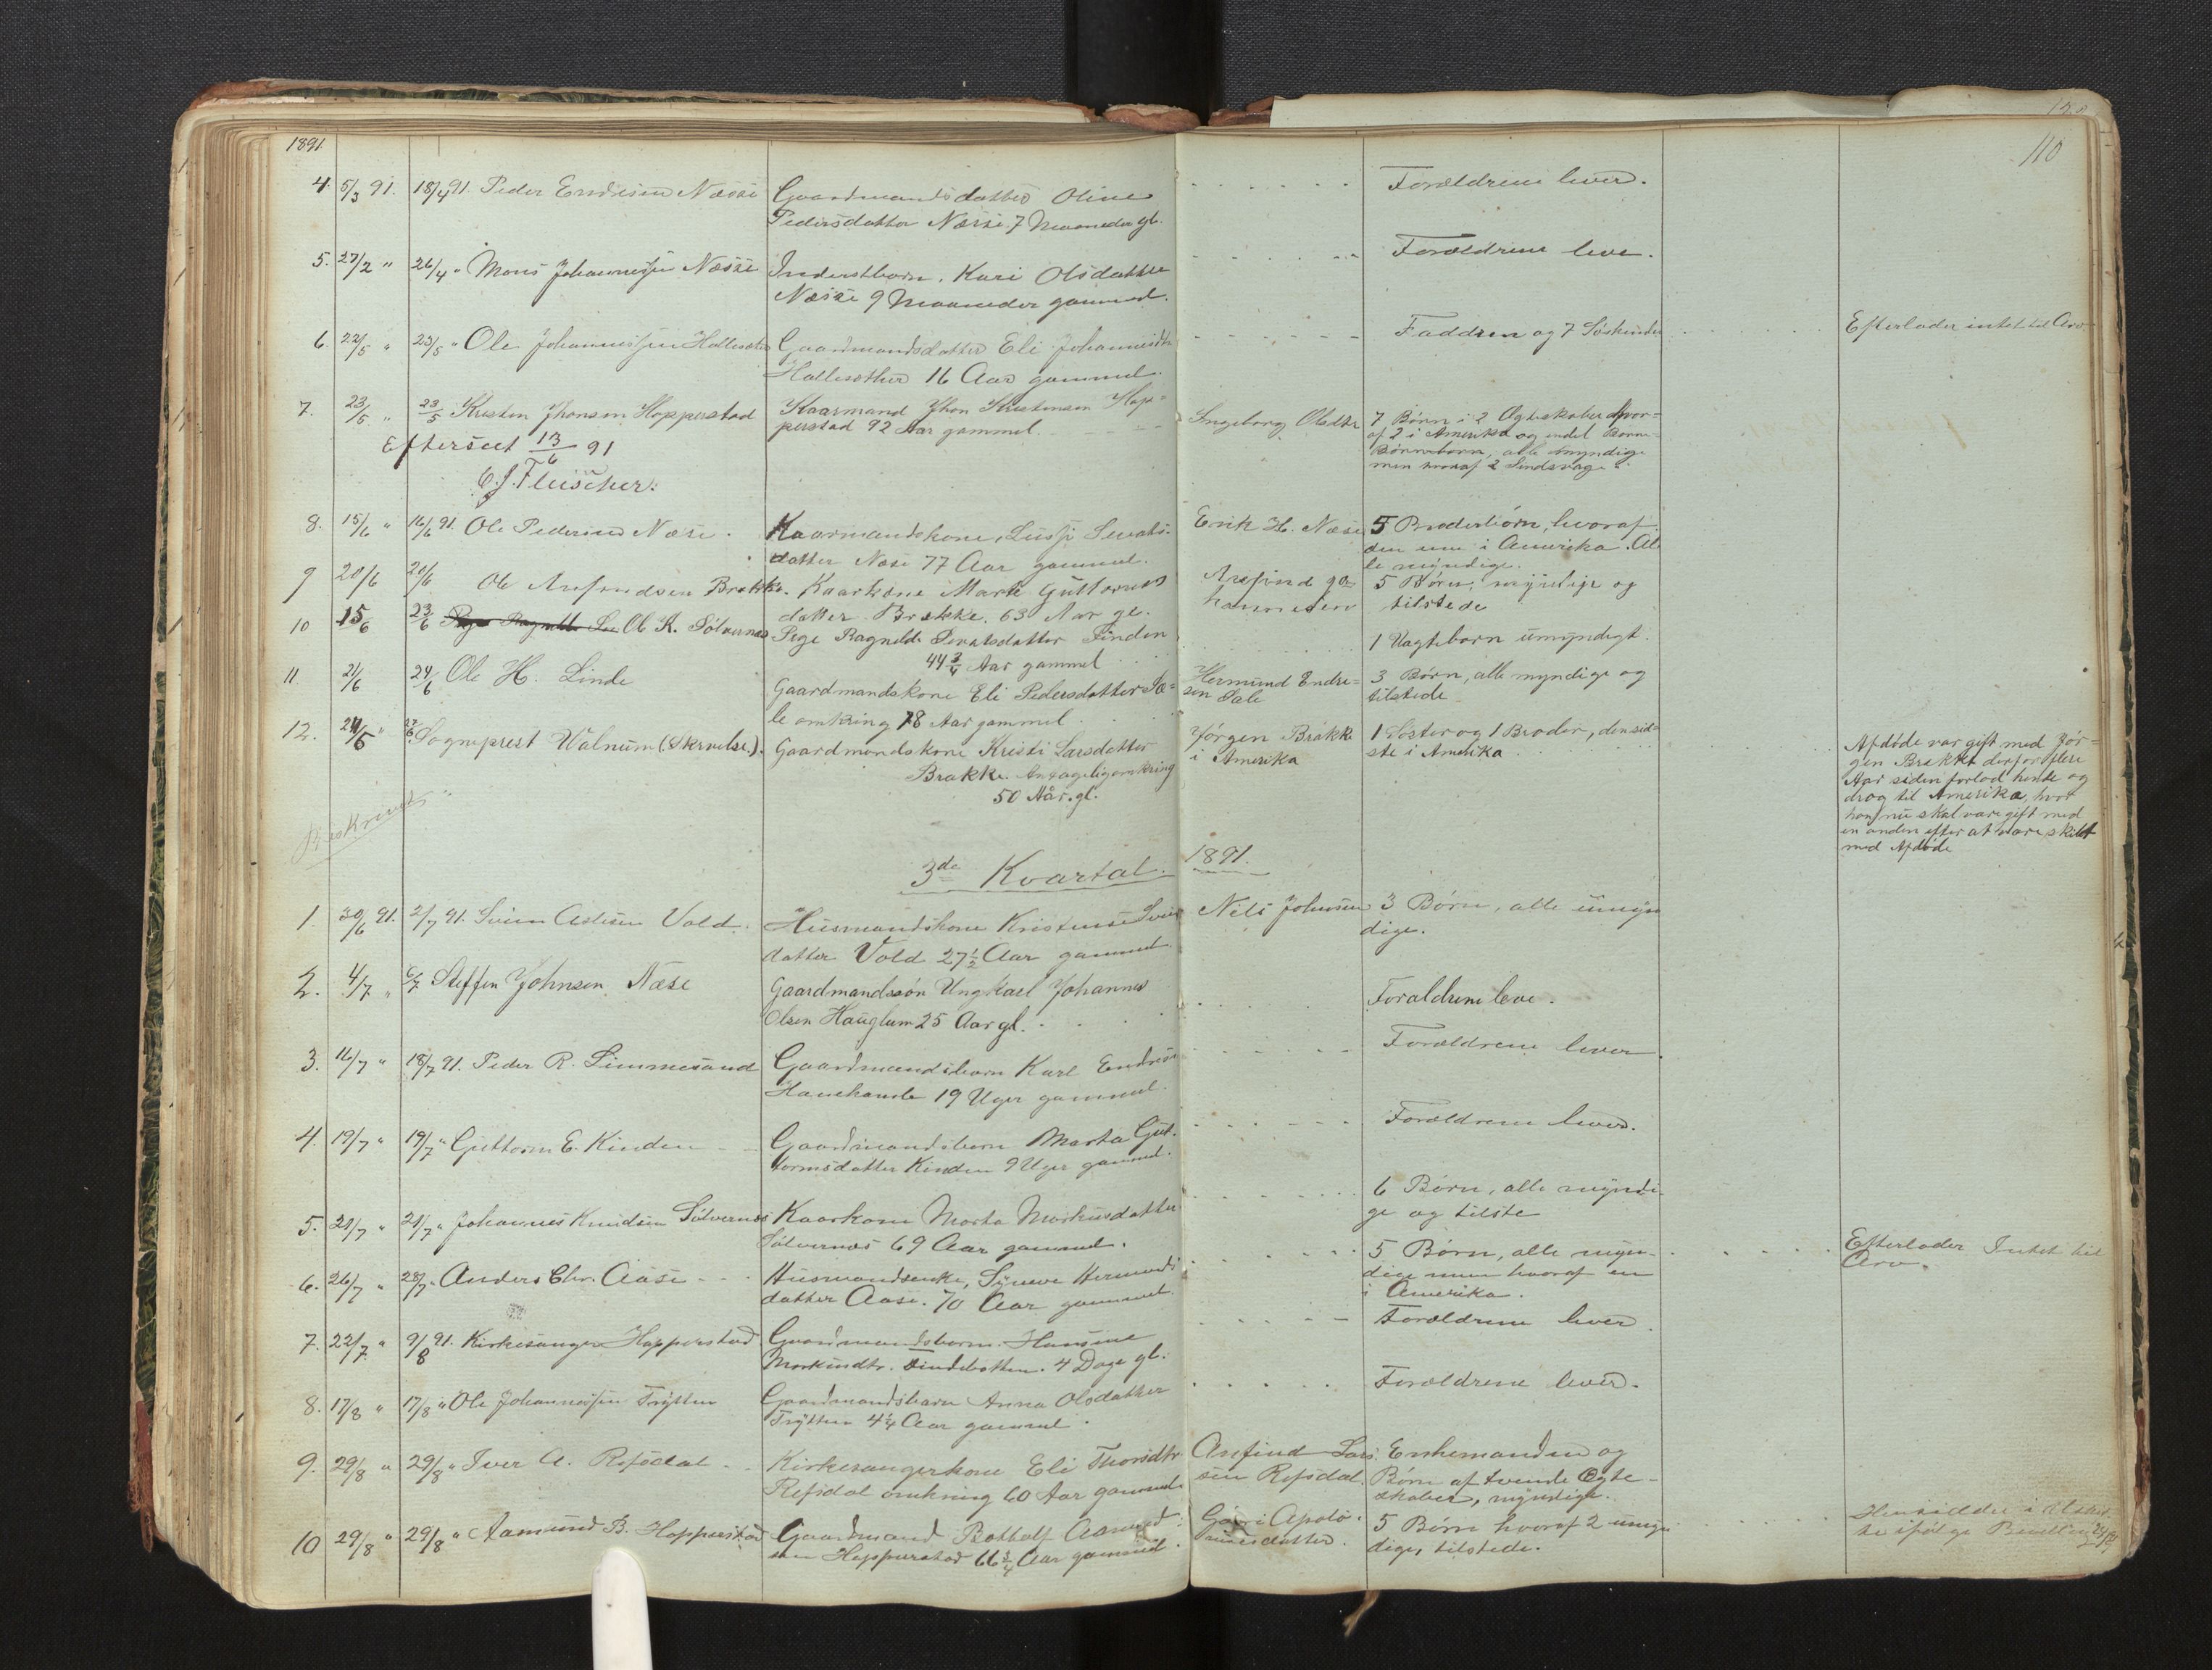 1891.
110
4. 5/3 91. 18/4 91. Peder Endresen Næse Gaardmandsdatter Oline - - - Forældrene lever.
Pedersdatter Næse. 7 Maaneder gl.
5. 27/2 " 26/4 " Mons Johannessen Næse Inderstbarn. Kari Olsdatter - - - Forældrene leve.
Næse 9 Maaneder gammel.
6. 22/5 " 23/5 " Ole Johannessen Hallesæter Gaardmandsdatter Eli Johannesdtr - - - Faddren og 7 Søskende Efterlader intet til Arv.
Hallesæther 16 Aar gammel.
7. 23/5 " 23/5 Kristen Jhonsen Hopperstad Kaarmand Jhon Kristensen Hop= Ingeborg Olsdtr 7 Børn i 2 Ægteskaber hvor=
perstad 92 Aar gammel. af 2 i Amerika og endel Børne-
Efterseet 13/6 91 Børnebørn, alle myndige
C. J. Fleischer. men hvoraf 2 Sindsvage.
8. 15/6 " 16/6 91. Ole Pedersen Næse. Kaarmandskone, Sivats- Erik H. Næse 5 Broderbørn, hvoraf
datter Næse 77 Aar gammel. den ene i Amerika. Al
le myndige.
9 20/6 20/6 Ole Anfindsen Brekke. Kaarkone Marte Guttorms Anfind Jo= 5 Børn, myndige og
datter Brekke. 63 Aar gl. hannesen tilstede
10 15/6 23/6 Ole K. Sølvernes Pige Ragnilde Sivatsdatter Finden 1 Uægte barn umyndigt.
44 3/4 Aar gammel
11 21/6 24/6 Ole H. Linde Gaardmandskone Eli Pedersdatter Sæ= Hermund Endre= 3 Børn, alle myndige og
le omkring 78 Aar gammel. sen Sæle tilstede
12. 24/5 " 27/6 Sogneprest Walnum (Skrivelse). Gaardmandskone Kristi Larsdatter Jørgen Brekke 1 Søster og 1 Broder, den sid=
Brekke. Antageligomkring i Amerika ste i Amerika
50 Aar. gl.
Afdøde var gift med Jør=
gen Brekke der for flere
Aar siden forlod hende og
drog til Amerika, hvor
han nu skal være gift med
en anden efter at være skilt
med Afdøde
3de Kvartal. 1891.
1. 30/6 91. 2/7 91. Svein Vold. Husmandskone Kristense Svein Nels Johnsen 3 Børn, alle umyn
datter Vold 27 1/2 Aar gammel. dige.
2. 4/7 " 6/7 Steffen Johnsen Næse Gaardmandssøn Ungkarl Johannes Forældrene leve.
Olsen Hauglum 25 Aar gl.
3. 16/7 " 18/7 91. Peder R. Simmesand Gaardmandsbarn Karl Endres - - - Forældrene lever.
19 Uger gammel.
4. 19/7 " 19/7 " Guttorm E. Kinden - - Gaardmandsbarn Marta Gut- - - - Forældrene lever.
tormsdatter Kinden 9 Uger gammel.
5. 21/7 " 21/7 " Johannes Knudsen Sølvernes Kaarkone Marta Markusdatter 6 Børn, alle myndi-
Sølvernes 69 Aar gammel. ge og tilste
6. 26/7 " 28/7 " Anders Chr. Aase - - Husmandsenke, Synneve Hermunds 5 Børn, alle myn- Efterlader Intet til
datter Aase. 70 Aar gammel. dige men hvoraf en Arv.
i Amerika.
7. 22/7 " 9/8 91. Kirkesanger Hopperstad. Gaardmandsbarn. Hansine Forældrene lever.
Markusdtr. Tindebotten. 4 Dage gl.
8. 17/8 " 17/8 " Ole Johannessen Trytten Gaardmandsbarn Anna Olsdatter Forældrene lever.
Trytten 4 1/4 Aar gammel.
9. 29/8 " 29/8 " Iver A. Refsdal - - Kirkesangerkone Eli Thorsdtr Anfind Lars Enkemanden og
Refsdal omkring 60 Aar gammel sen Refsdal. Børn af tvende Ægte-
skaber, myndige.
10 29/8 " 29/8 " Aamund B. Hopperstad Gaardmand Botholf Aamund 5 Børn hvoraf 2 umyn
sen Hopperstad 66 3/4 Aar gammel. dige, tilstede.
Hensidder i